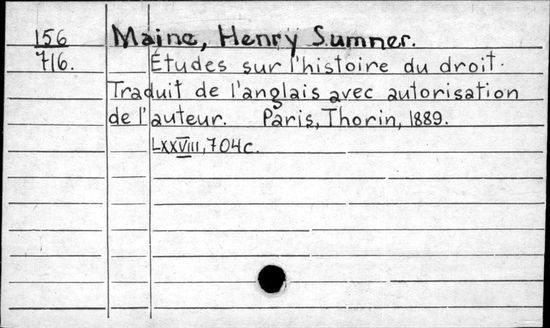 156
716.
Maine, Henry Sumner.
Études sur l'histoire du droit.
Traduit de l'anglais avec autorisation
de l'auteur. Paris, Thorin, 1889.
LXXVIII, 704c.